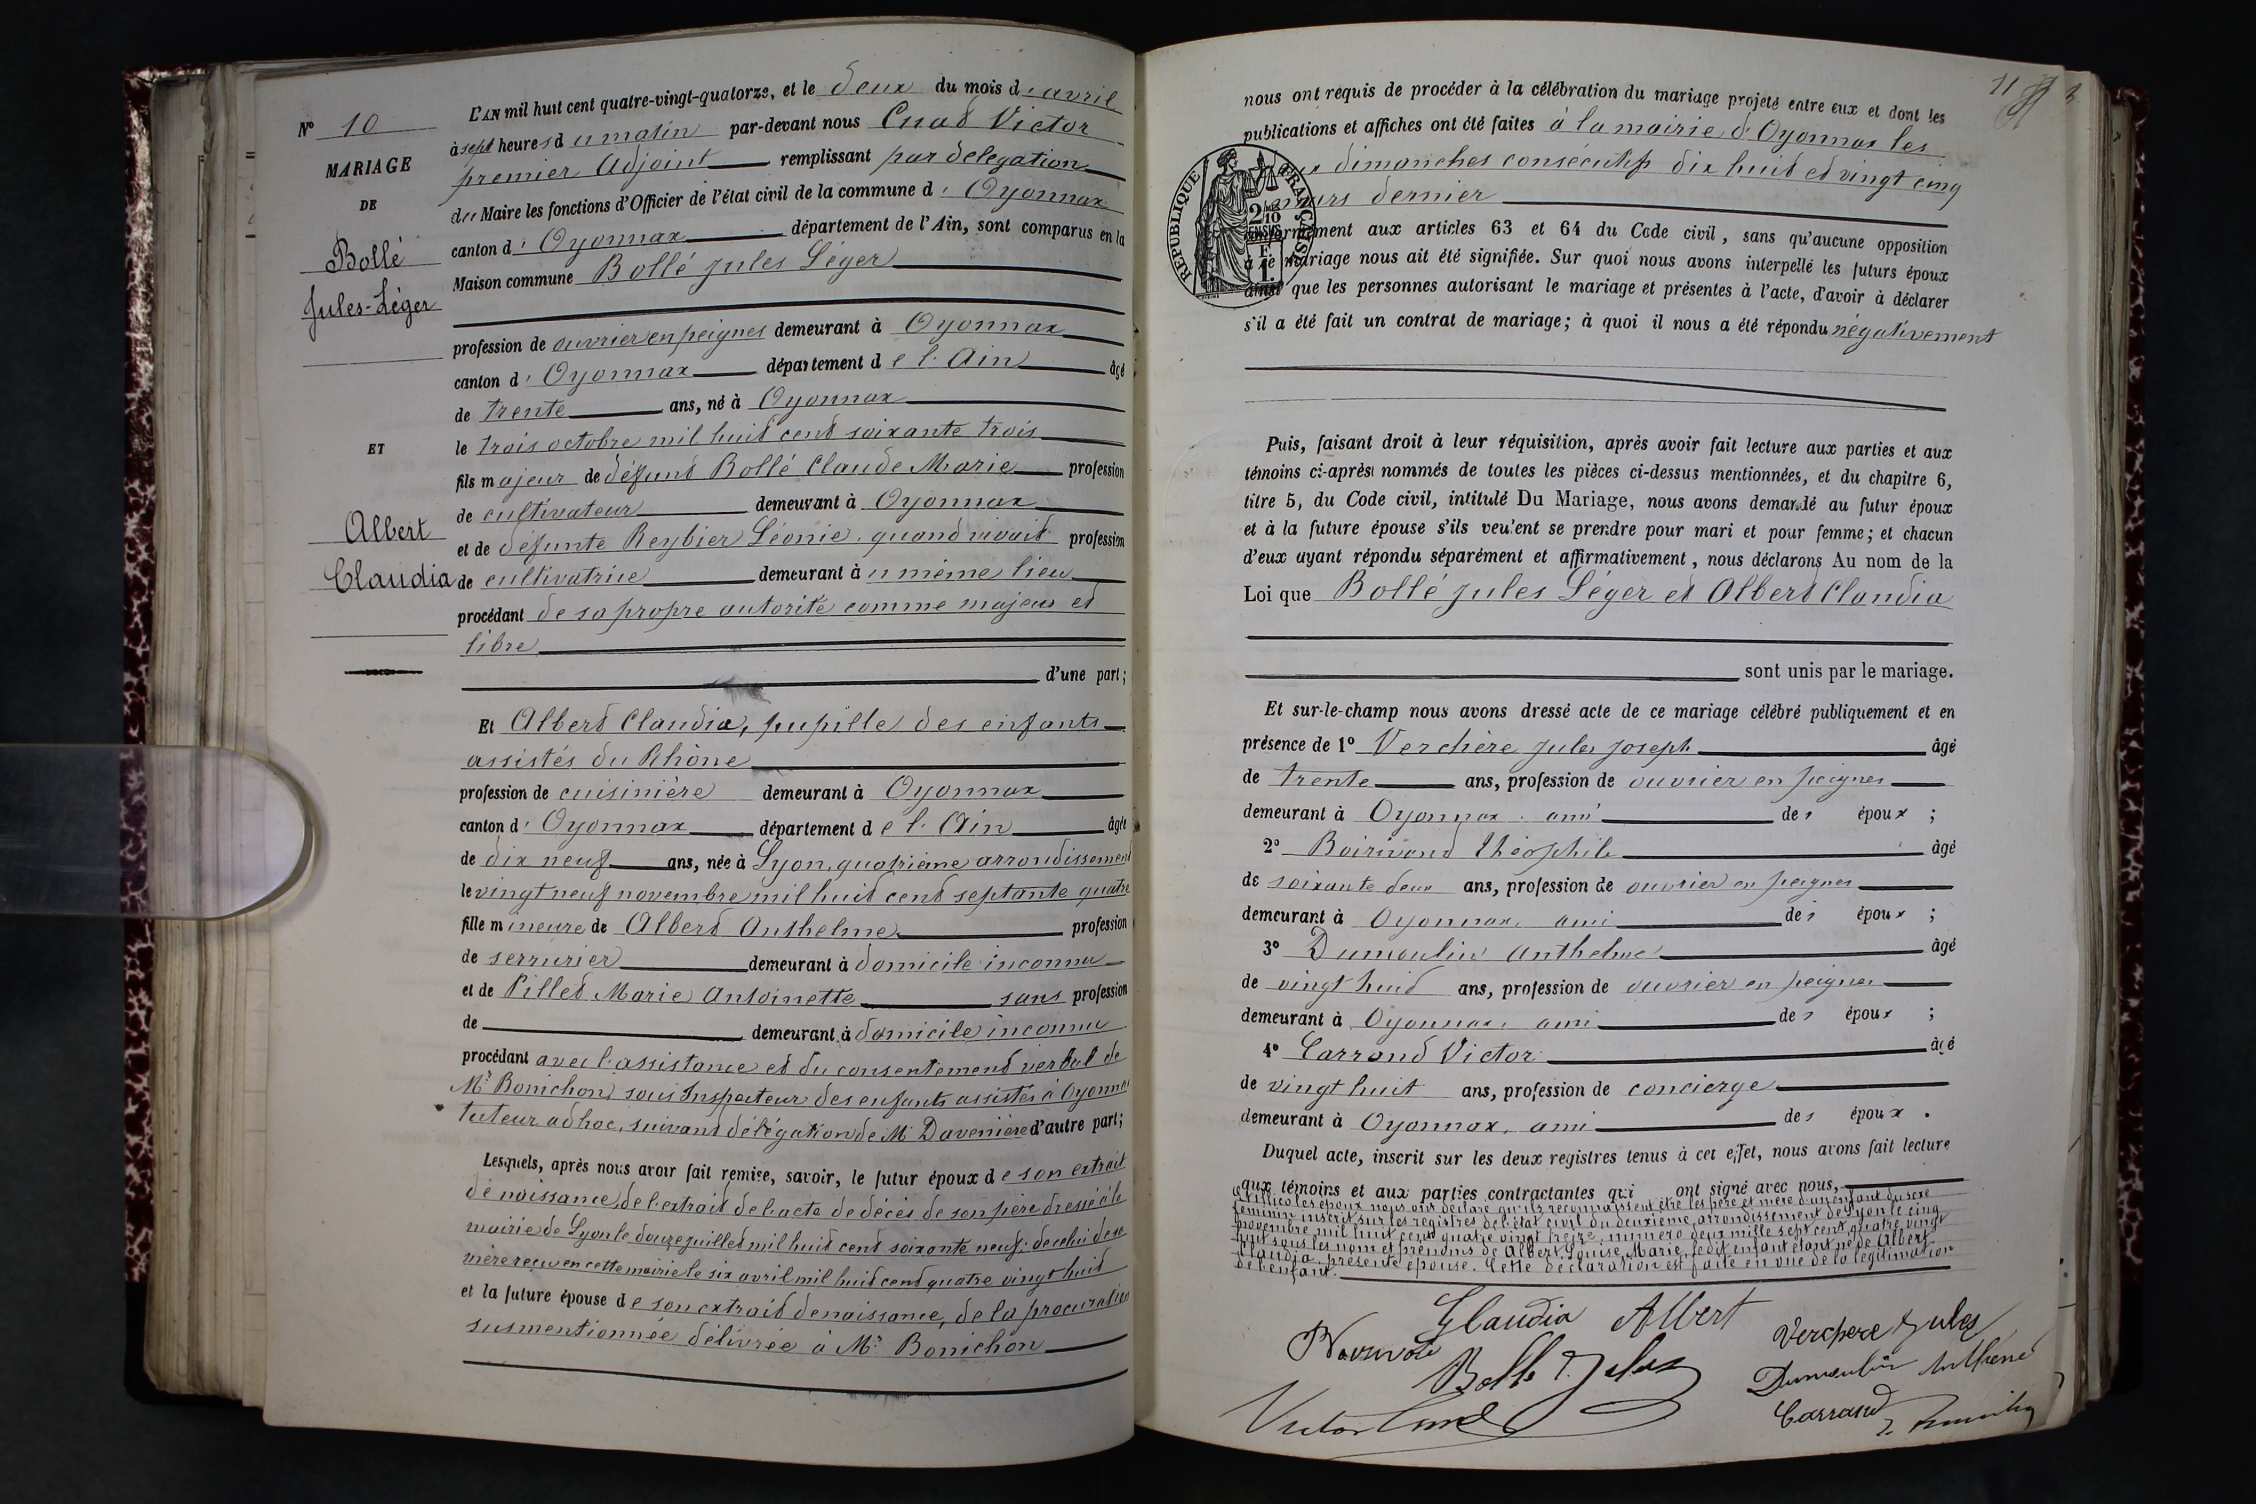 N° 10
MARIAGE
DE
Bollé
Jules-Léger
ET
Albert
Claudia
L'AN mil huit cent quatre-vingt-quatorze, et le deux du mois d'avril
à sept heures du matin par-devant nous Cuad Victor
premier Adjoint remplissant par délégation
du Maire les fonctions d'Officier de l'état civil de la commune d'Oyonnax
canton d'Oyonnax département de l'Ain, sont comparus en la
Maison commune Bollé Jules Léger
profession de ouvrier en peignes demeurant à Oyonnax
canton d'Oyonnax département de l'Ain âgé
de trente ans, né à Oyonnax
le trois octobre mil huit cent soixante trois
fils majeur de défunt Bollé Claude Marie profession
de cultivateur demeurant à Oyonnax
et de défunte Reybier Léonie, quand vivait profession
de cultivatrice demeurant au même lieu
procédant de sa propre autorité comme majeur et
libre
d'une part;
Et Albert Claudia, pupille des enfants
assistés du Rhône
profession de cuisinière demeurant à Oyonnax
canton d'Oyonnax département de l'Ain âgée
de dix neuf ans, née à Lyon, quatrième arrondissement
le vingt neuf novembre mil huit cent septante quatre
fille mineure de Albert Anthelme profession
de serrurier demeurant à domicile inconnu
et de Pillet Marie Antoinette sans profession
de demeurant à domicile inconnu
procédant avec l'assistance et du consentement verbal de
Mr Bonichon, sous Inspecteur des enfants assistés à Oyonnax
tuteur adhoc, suivant délégation de Mr Davenière d'autre part;
Lesquels, après nous avoir fait remise, savoir, le futur époux de son extrait
de naissance, de l'extrait de l'acte de décès de son père dressé à la
mairie de Lyon le douze juillet mil huit cent soixante neuf; de celui de sa
mère reçu en cette mairie le six avril mil huit cent quatre vingt huit
et la future épouse de son extrait de naissance, de la procuration
susmentionnée délivrée à Mr Bonichon
11
nous ont requis de procéder à la célébration du mariage projeté entre eux et dont les
publications et affiches ont été faites à la mairie d'Oyonnax les
dimanches consécutifs dix huit et vingt cinq
mars dernier
RÉPUBLIQUE FRANÇAISE
2/10 EN SUS
1 F
conformément aux articles 63 et 64 du Code civil, sans qu'aucune opposition
à ce mariage nous ait été signifiée. Sur quoi nous avons interpellé les futurs époux
ainsi que les personnes autorisant le mariage et présentes à l'acte, d'avoir à déclarer
s'il a été fait un contrat de mariage; à quoi il nous a été répondu négativement
Puis, faisant droit à leur réquisition, après avoir fait lecture aux parties et aux
témoins ci-après nommés de toutes les pièces ci-dessus mentionnées, et du chapitre 6,
titre 5, du Code civil, intitulé Du Mariage, nous avons demandé au futur époux
et à la future épouse s'ils veulent se prendre pour mari et pour femme; et chacun
d'eux ayant répondu séparément et affirmativement, nous déclarons Au nom de la
Loi que Bollé Jules Léger et Albert Claudia
sont unis par le mariage.
Et sur-le-champ nous avons dressé acte de ce mariage célébré publiquement et en
présence de 1° Verchère Jules Joseph âgé
de trente ans, profession de ouvrier en peignes
demeurant à Oyonnax, ami des époux;
2° Théophile âgé
de soixante deux ans, profession de ouvrier en peignes
demeurant à Oyonnax, ami des époux;
3° Dumoulin Anthelme âgé
de vingt huit ans, profession de ouvrier en peignes
demeurant à Oyonnax, ami des époux;
4° Carrand Victor âgé
de vingt huit ans, profession de concierge
demeurant à Oyonnax, ami des époux.
Duquel acte, inscrit sur les deux registres tenus à cet effet, nous avons fait lecture
aux témoins et aux parties contractantes qui ont signé avec nous,
et illico les époux nous ont déclaré qu'ils reconnaissent être les père et mère d'un enfant du sexe
féminin inscrit sur les registres de l'état civil du deuxième arrondissement de Lyon le cinq
novembre mil huit cent quatre vingt treize, numéro deux mille sept cent quatre vingt
huit sous les nom et prénoms de Albert Louise Marie, ledit enfant étant né de Albert
Claudia, présente épouse. Cette déclaration est faite en vue de la légitimation
de l'enfant.
Claudia Albert
Bollé Jules
Verchere Jules
Dumoulin Anthelme
Carrand
Victor Cuad